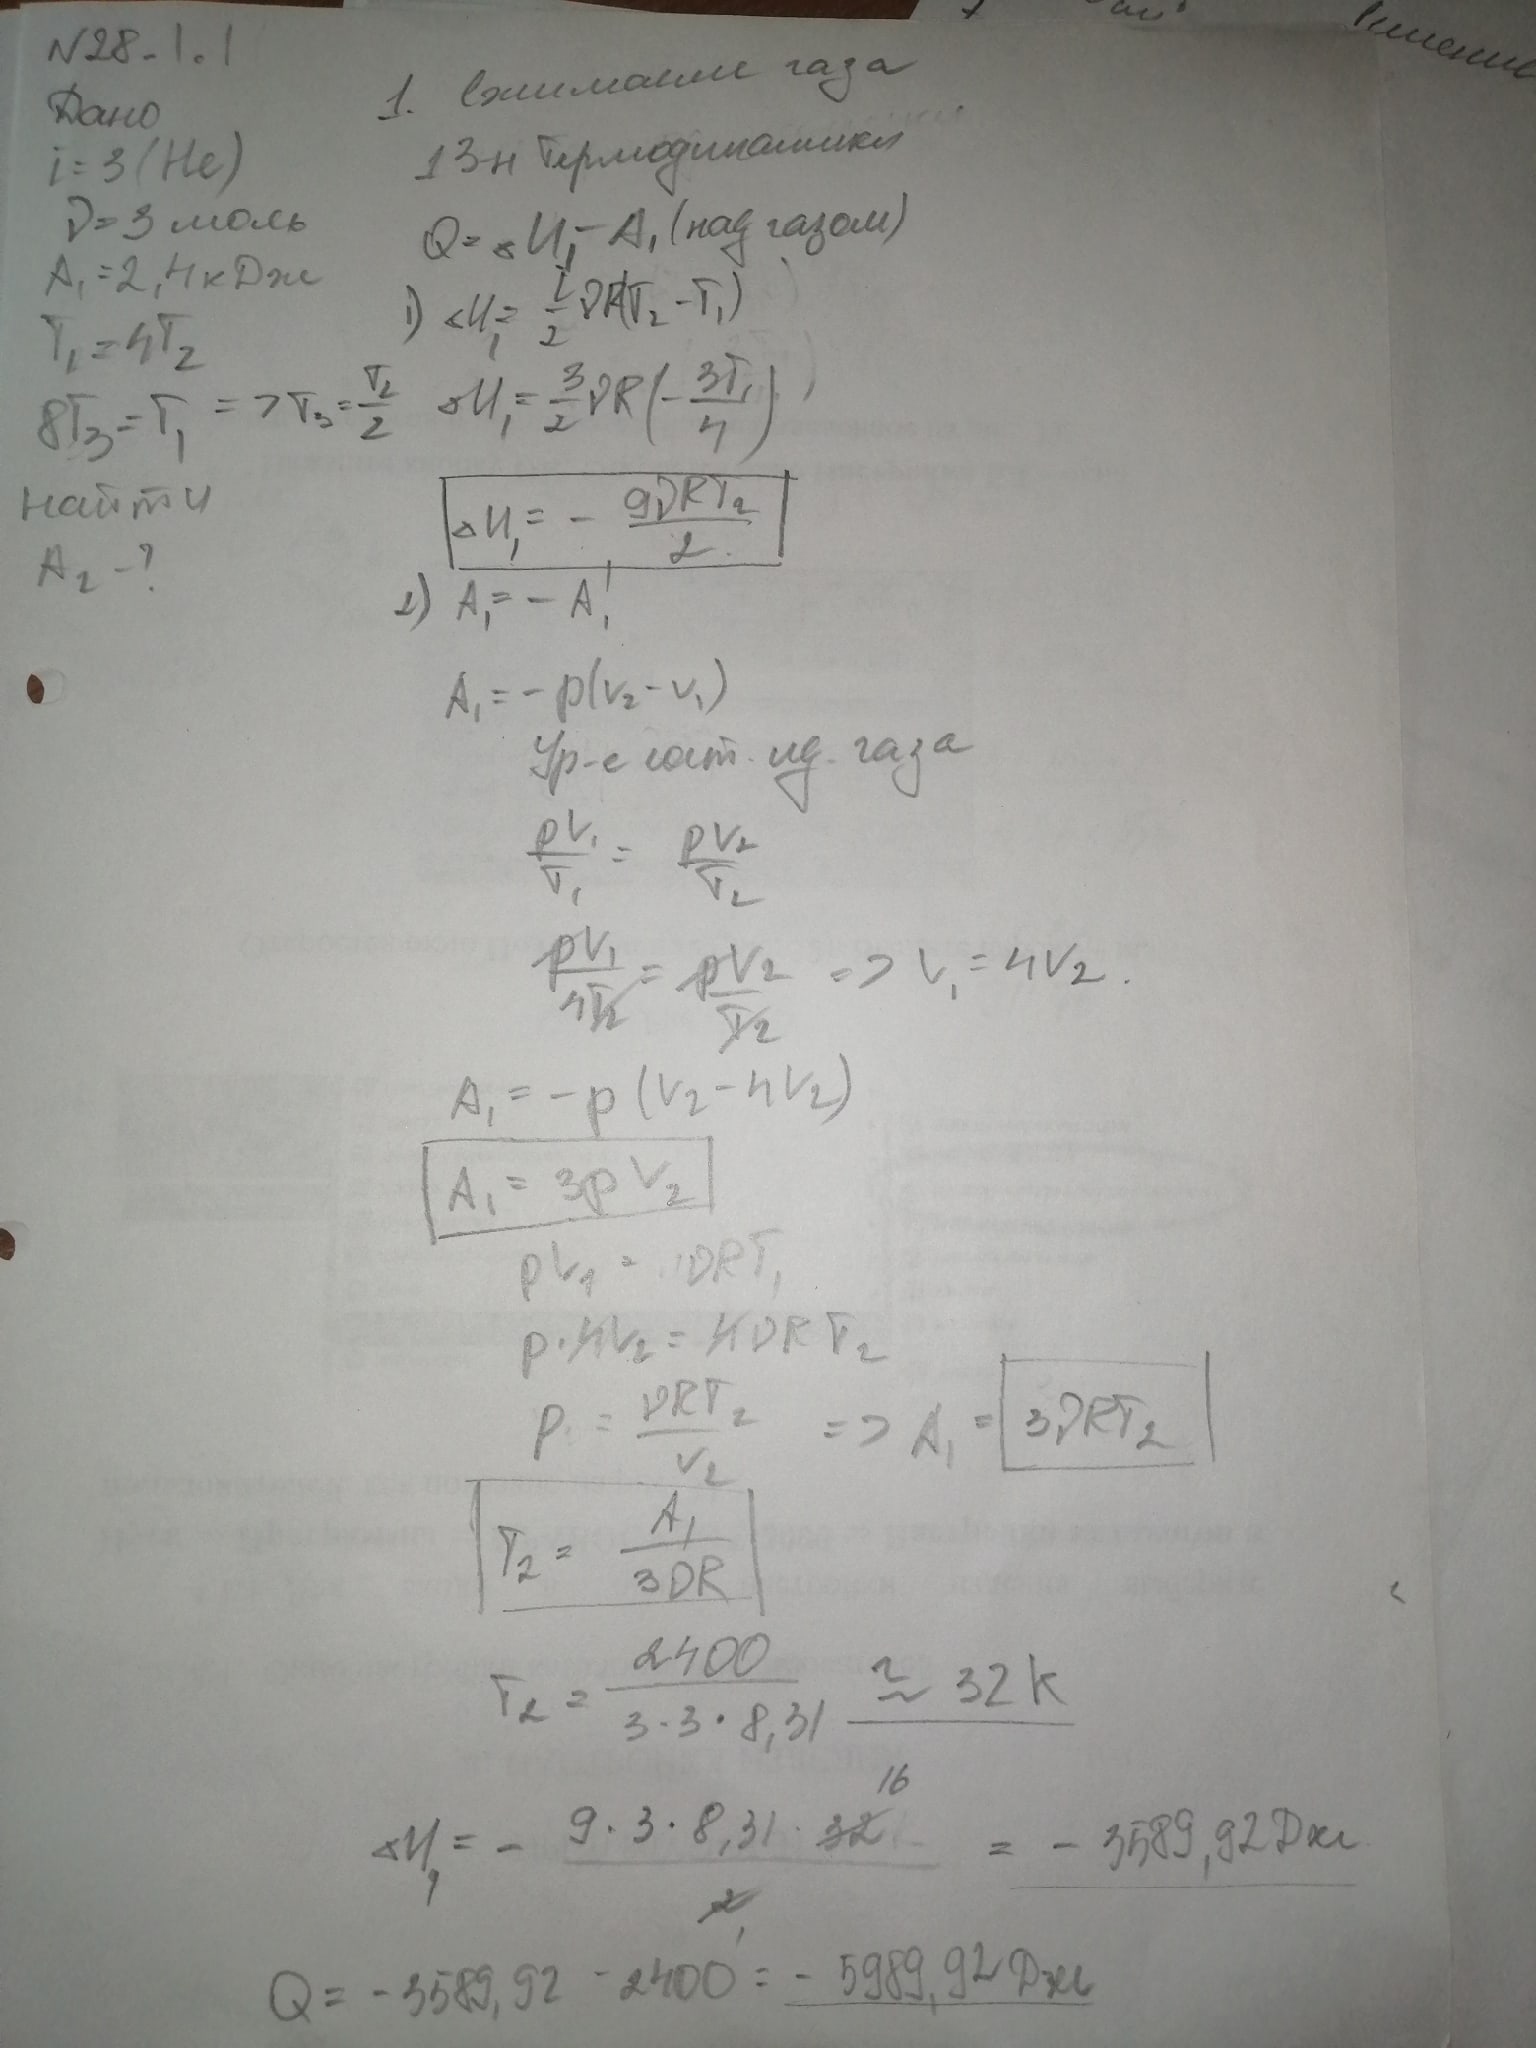 N28-1.1
Дано
i=3 (He)
ν=3 моль
A₁=2,4 кДж
T₁=4T₂
8T₃=T₁ => T₃=T₂/2
найти
A₂-?
1. Сжимание газа
1 З-н Термодинамики
Q=ΔU₁-A₁ (над газом)
1) ΔU₁= i/2 νR(T₂-T₁)
ΔU₁= 3/2 νR(-3T₁/4)
ΔU₁= - 9νRT₂/2
2) A₁= - A₁'
A₁= - p(V₂-V₁)
Ур-е сост. ид. газа
pV₁/T₁ = pV₂/T₂
pV₁/4T₂ = pV₂/T₂ => V₁=4V₂.
A₁= - p (V₂-4V₂)
A₁= 3pV₂
pV₁ = νRT₁
p·4V₂=4νRT₂
p = νRT₂/V₂ => A₁ = 3νRT₂
T₂ = A₁/3νR
T₂ = 2400/3·3·8,31 ≈ 32 K
ΔU₁= - 9·3·8,31·32 16/2 = - 3589,92 Дж
Q= -3589,92 -2400 = - 5989,92 Дж